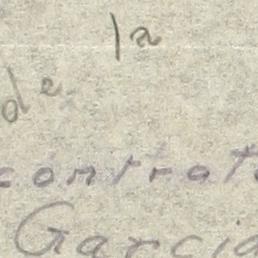 la
de
contrat
Garcia